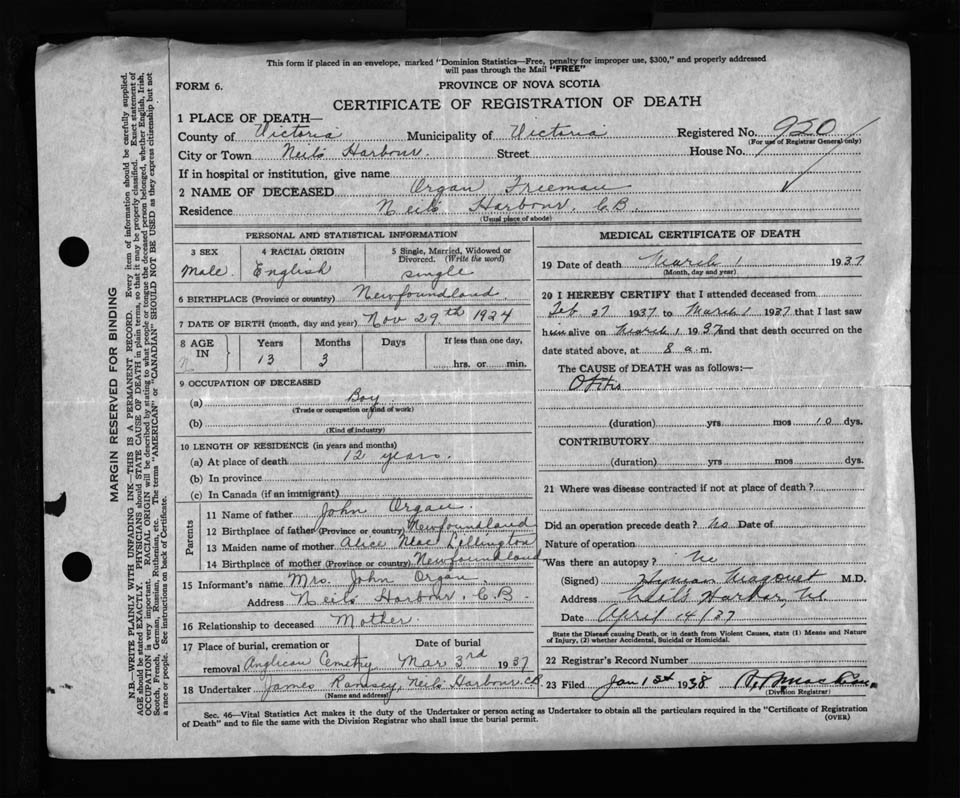 This form if placed in an envelope, marked "Dominion Statistics—Free, penalty for improper use, $300," and properly addressed
will pass through the Mail "FREE"
FORM 6.
PROVINCE OF NOVA SCOTIA
CERTIFICATE OF REGISTRATION OF DEATH
1 PLACE OF DEATH—
County of Victoria Municipality of Victoria Registered No. 920
(For use of Registrar General only)
City or Town Neils Harbour. Street House No.
If in hospital or institution, give name
2 NAME OF DECEASED Organ Freeman
Residence Neils Harbour, C.B.
(Usual place of abode)
PERSONAL AND STATISTICAL INFORMATION
3 SEX 4 RACIAL ORIGIN 5 Single, Married, Widowed or
Divorced. (Write the word)
Male. English single
6 BIRTHPLACE (Province or country) Newfoundland.
7 DATE OF BIRTH (month, day and year) Nov 29th 1924
8 AGE IN Years Months Days If less than one day,
13 3 hrs. or min.
9 OCCUPATION OF DECEASED
(a) Boy
(Trade or occupation or kind of work)
(b)
(Kind of industry)
10 LENGTH OF RESIDENCE (in years and months)
(a) At place of death 12 years.
(b) In province
(c) In Canada (if an immigrant)
Parents
11 Name of father John Organ.
12 Birthplace of father (Province or country) Newfoundland
13 Maiden name of mother Alice Mae
14 Birthplace of mother (Province or country) Newfoundland
15 Informant's name Mrs. John Organ.
Address Neils Harbour, C.B.
16 Relationship to deceased Mother.
17 Place of burial, cremation or Date of burial
removal Anglican Cemetry Mar 3rd 1937
18 Undertaker James Ramsey, Neils Harbour C.B.
(Name and address)
MEDICAL CERTIFICATE OF DEATH
19 Date of death March 1 1937
(Month, day and year)
20 I HEREBY CERTIFY that I attended deceased from
Feb 27 1937 to March 1 1937 that I last saw
him alive on March 1 1937 and that death occurred on the
date stated above, at 8 a.m.
The CAUSE of DEATH was as follows:—
Otitis
(duration) yrs mos 10 dys.
CONTRIBUTORY
(duration) yrs mos dys.
21 Where was disease contracted if not at place of death?
Did an operation precede death? No Date of
Nature of operation
Was there an autopsy? No
(Signed) Hyman M.D.
Address Neil's Harbor, N.S.
Date April 14/37
State the Disease causing Death, or in death from Violent Causes, state (1) Means and Nature
of Injury, (2) whether Accidental, Suicidal or Homicidal.
22 Registrar's Record Number
23 Filed Jan 1st 1938
(Division Registrar)
Sec. 46—Vital Statistics Act makes it the duty of the Undertaker or person acting as Undertaker to obtain all the particulars required in the "Certificate of Registration
of Death" and to file the same with the Division Registrar who shall issue the burial permit.
(OVER)
MARGIN RESERVED FOR BINDING
N.B.—WRITE PLAINLY WITH UNFADING INK—THIS IS A PERMANENT RECORD. Every item of information should be carefully supplied.
AGE should be stated EXACTLY. PHYSICIANS should STATE CAUSE OF DEATH in plain terms, so that it may be properly classified. Exact statement of
OCCUPATION is very important. RACIAL ORIGIN will be described by stating to what people or tongue the deceased person belonged, whether English, Irish,
Scotch, French, German, Russian, Ruthenian, etc. The terms "AMERICAN" or "CANADIAN" SHOULD NOT BE USED as they express citizenship but not
a race or people. See instructions on back of Certificate.